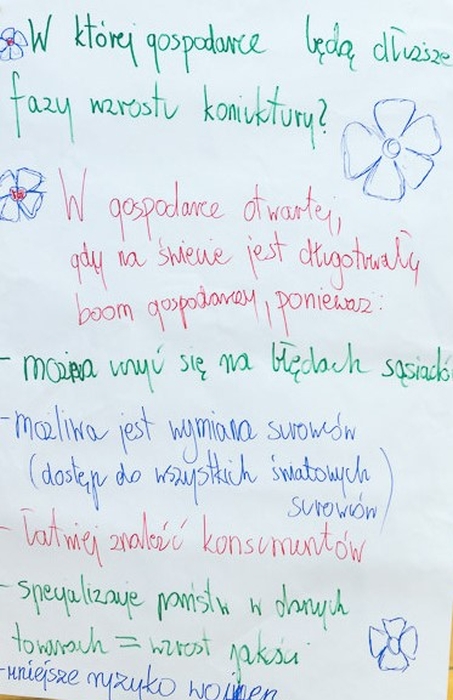 W której gospodarce będą dłuższe
fazy wzrostu koniuktury?
W gospodarce otwartej,
gdy na świecie jest długotrwały
boom gospodarczy, ponieważ:
- można uczyć się na błędach sąsiadów
- możliwa jest wymiana surowców
(dostęp do wszystkich światowych
surowców)
- łatwiej znaleźć konsumentów
- specjalizacje państw w danych
towarach = wzrost jakości
- mniejsze ryzyko wojen